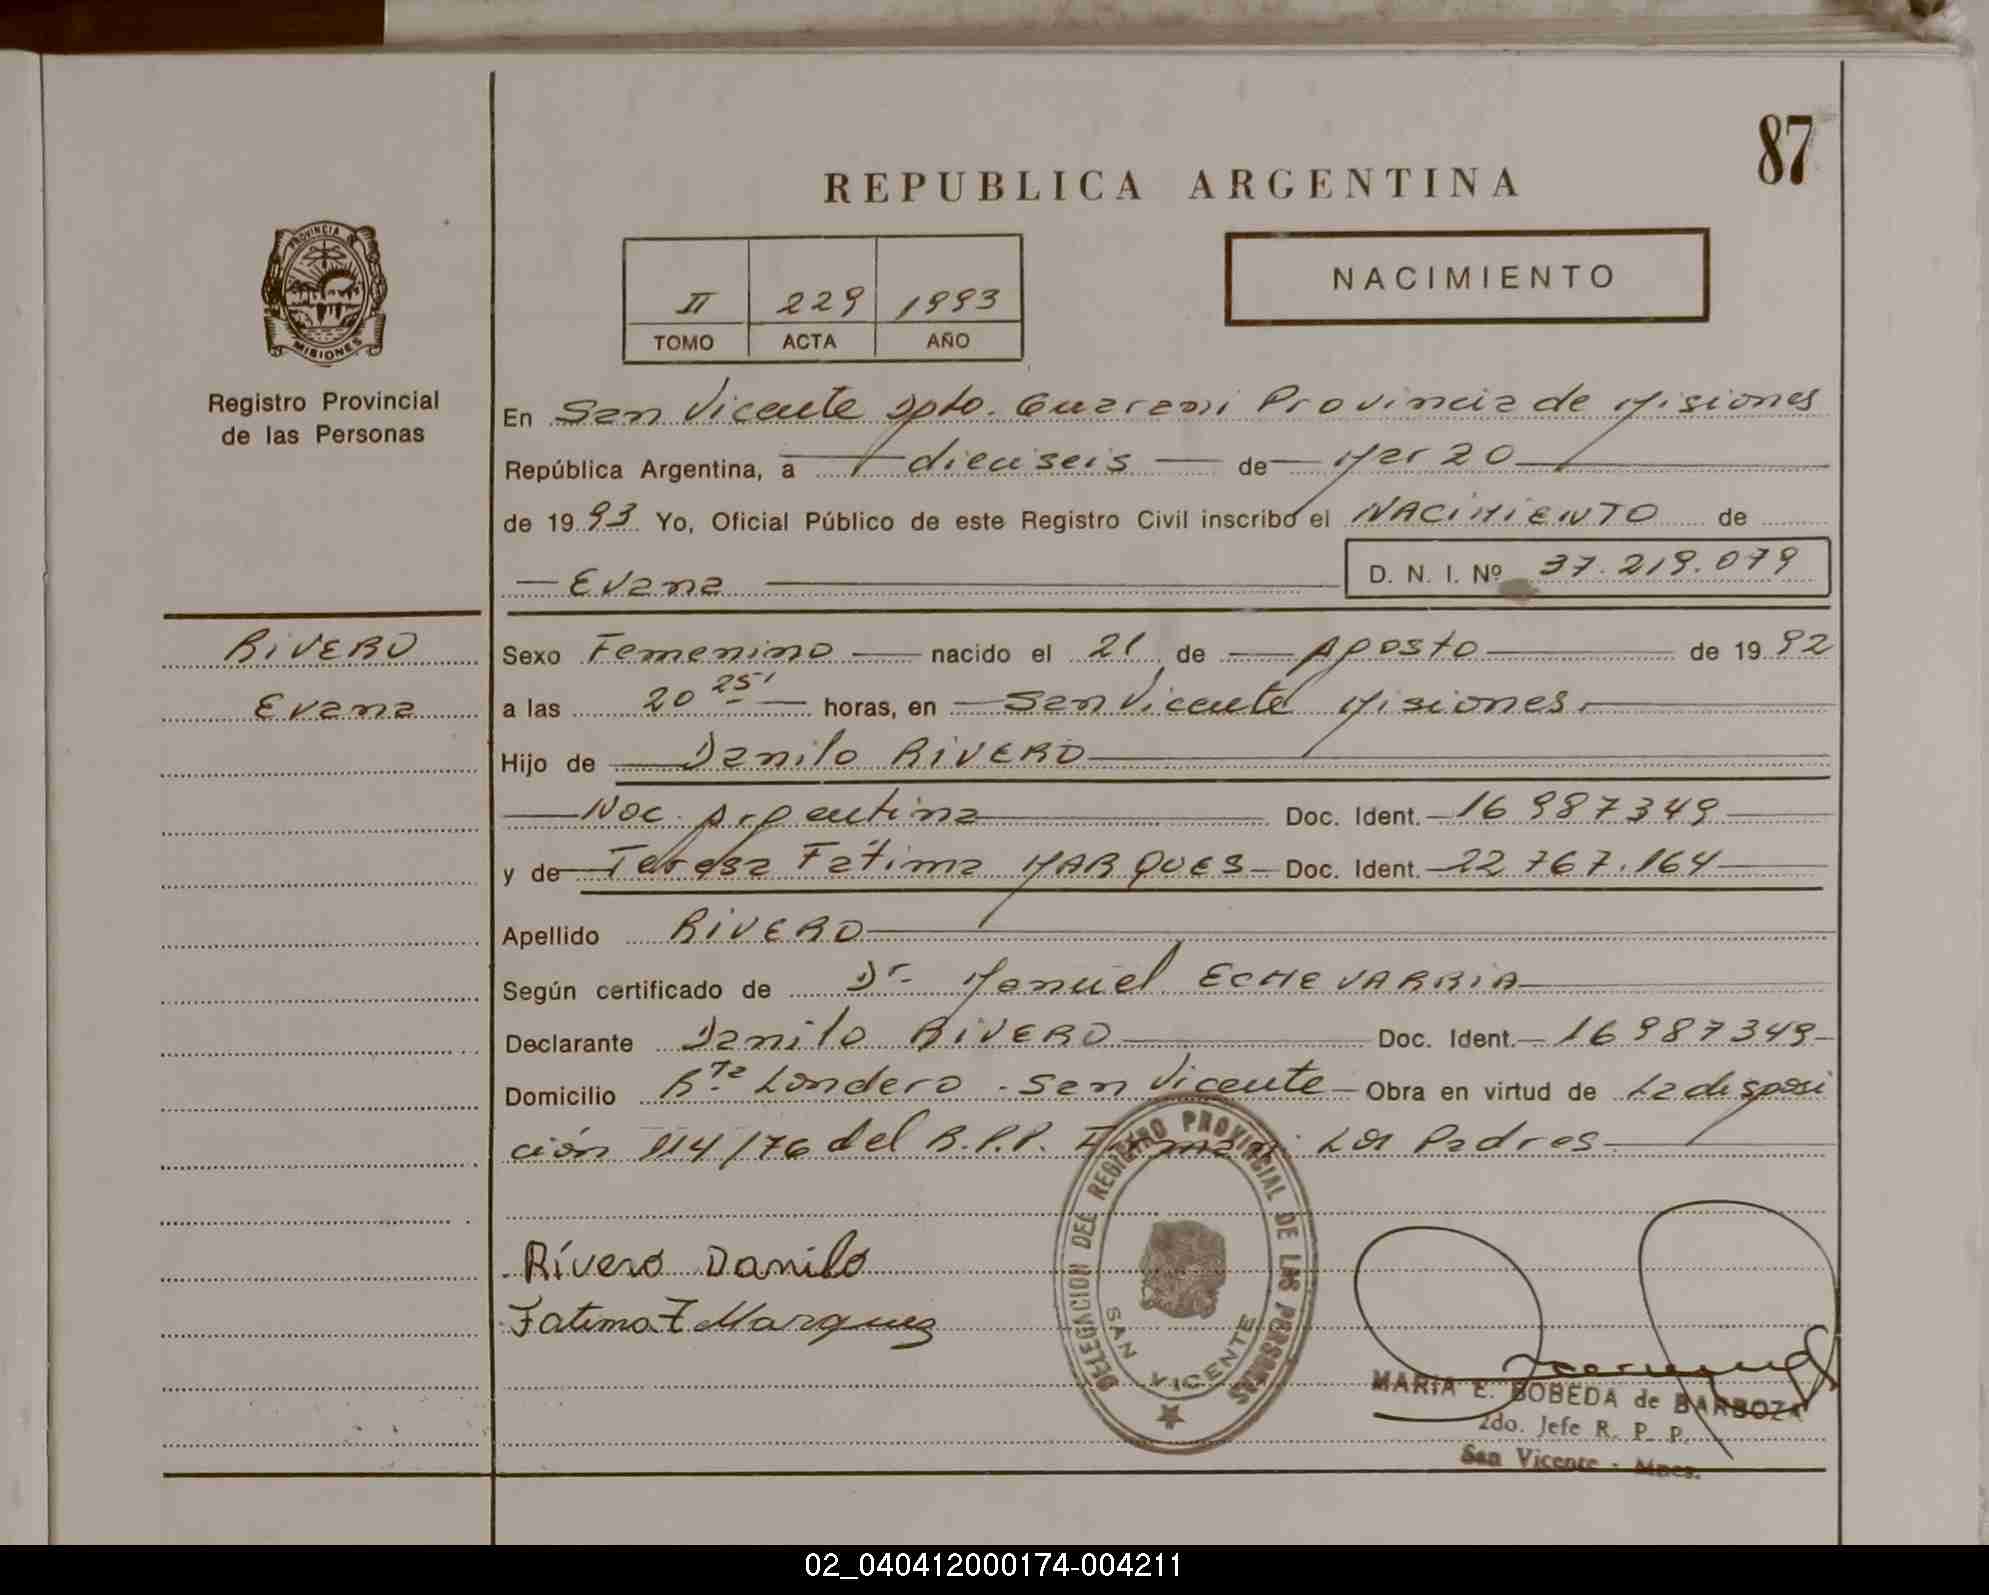 87
REPUBLICA ARGENTINA
PROVINCIA DE
MISIONES
Registro Provincial
de las Personas
NACIMIENTO
II 229 1993
TOMO ACTA AÑO
En San Vicente Dpto. Guarani Provincia de Misiones
República Argentina, a dieciseis de Marzo
de 1993 Yo, Oficial Público de este Registro Civil inscribo el NACIMIENTO de
Evana D. N. I. Nº 37.219.079
RIVERO
Evana
Sexo Femenino nacido el 21 de Agosto de 1992
a las 20 25' horas, en San Vicente Misiones.
Hijo de Danilo RIVERO
Nac. Argentina Doc. Ident. 16 987349
y de Teresa Fátima MARQUES Doc. Ident. 22 767.164
Apellido RIVERO
Según certificado de Dr. Manuel ECHEVARRIA
Declarante Danilo RIVERO Doc. Ident. 16987349
Domicilio Rta Londero - San Vicente Obra en virtud de La disposi
ción 114/76 del R.P.P. Firman: Los Padres
Rívero Danilo
Fatima T Marquez
DELEGACION DEL REGISTRO PROVINCIAL DE LAS PERSONAS
SAN VICENTE
MARIA E. BOBEDA de BARBOZA
2do. Jefe R. P. P.
San Vicente - Mnes.
02_040412000174-004211